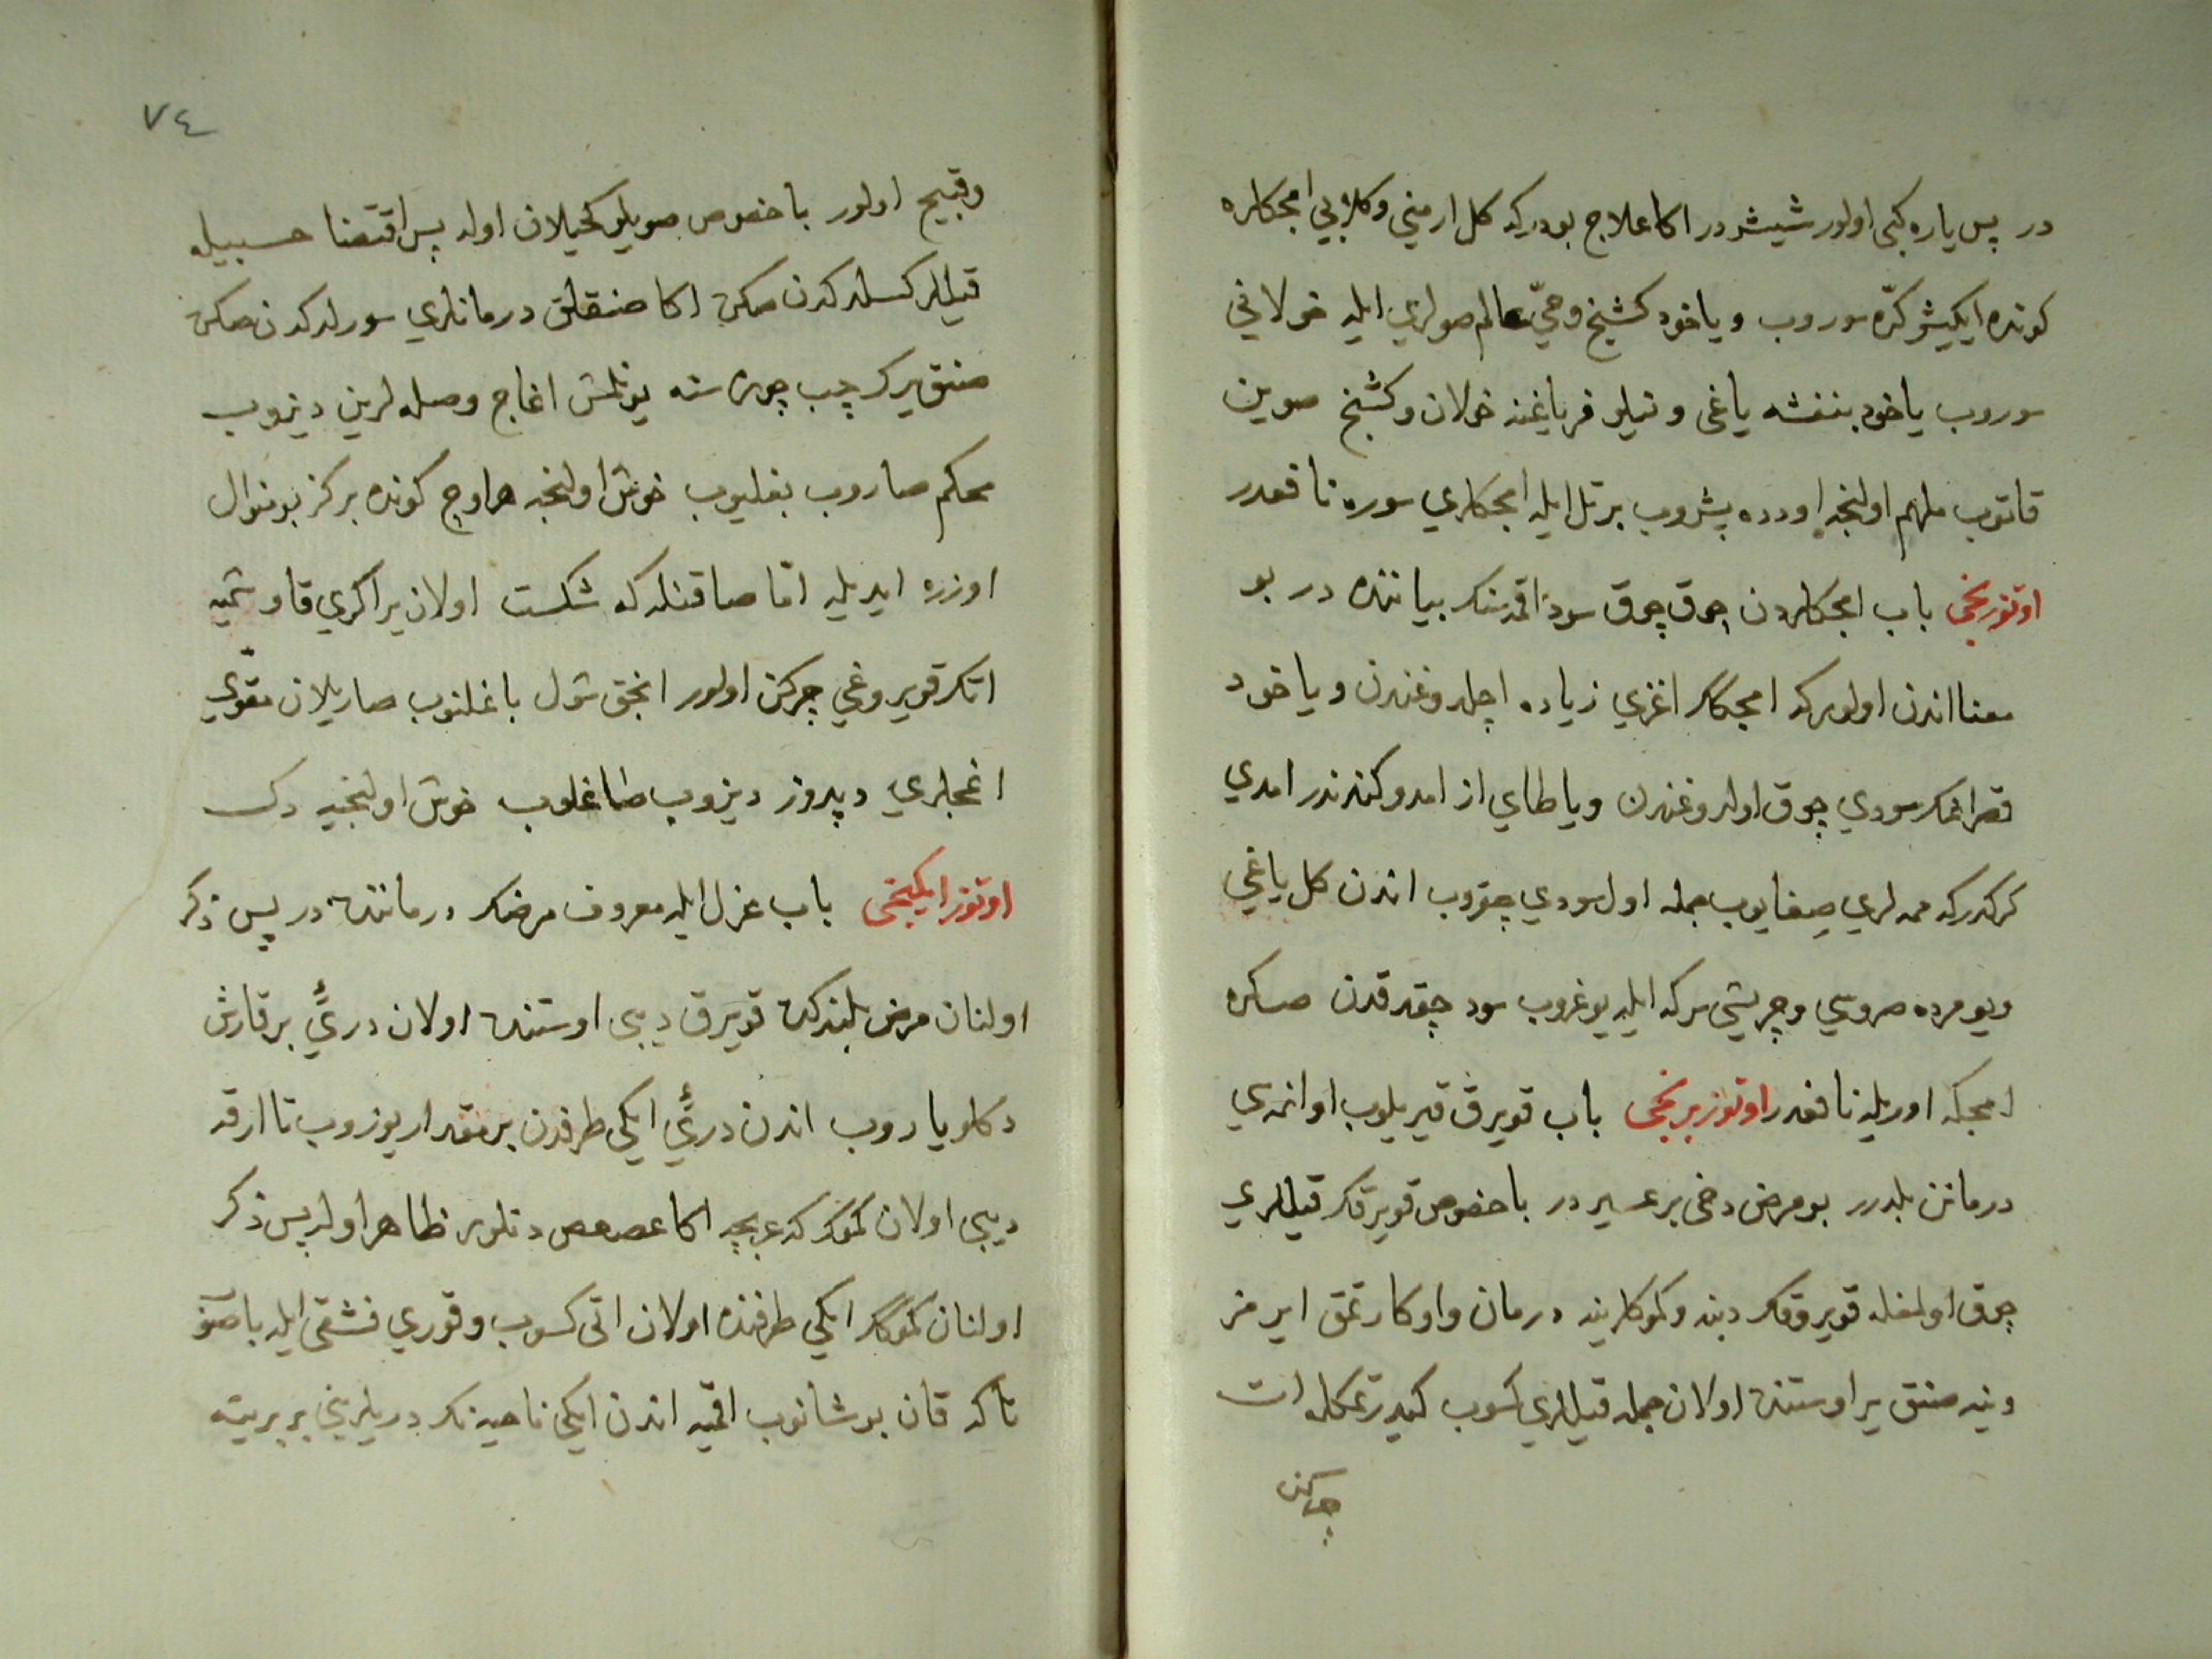 در پس ياره كبى اولور شيشر در اكا علاج بودركه كل ارمني وكلابيي امجكلره
كونده ايكيشر كرّه سوروب وياخود كشنج وحيّ عالم صولري ايله خولاني
سوروب ياخود بنفشه ياغى و نيلوفر ياغنه خولان وكشنج صوين
قاتوب ملهم اولنجه اودده پشروب برتل ايله امجكلري سوره نافعدر
اوتوزنجى باب امجكلردن چوق چوق سود اقمسنك بياننده در بو
معنا اندن اولوركه امجكلر اغزي زياده اچلدوغندن وياخود
قصراغك سودي چوق اولدوغندن وياطاي از امدوكندندر امدي
كركدركه ممه لري صيغايوب جمله اول سودي چقروب اندن كل ياغي
ويومرده صروسي وچريشي سركه ايله يوغروب سود چقدقدن صكره
امجكه اوريله نافعدر اوتوز برنجى باب قويرق قيريلوب اوانمه سي
درمانن بلدرر بو مرض دخى بر عسير در باخصوص قويرقك قيللري
چوق اولمغله قويروقك دبنه وكوكلرينه درمان واوكارتمق ايرمز
وينه صنق ير اوستنده اولان جمله قيللري كسوب كيدرتمكله ات
چركن
٧٤
وقبيح اولور باخصوص صويلو كحيلان اوله پس اقتضا حسبيله
قيللر كسلدكدن صكره اكا صنقلق درمانلري سورلدكدن صكره
صنق يرك چپ چوره سنه يونلمش اغاج وصله لرين ديزوب
محكم صاروب بغليوب خوش اولنجه هر اوچ كونده بركز بو منوال
اوزره ايديله امّا صاقنلدكه شكست اولان ير اكري قاوشميه
اتك قويروغي چركن اولور انجق شول باغلنوب صاريلان مقوّي
اغجلري دپدوز ديزوب طاغلوب خوش اولنجيه دك
اوتوز ايكينجى باب عزل ايله معروف مرضك درماننده در پس ذكر
اولنان مرض بلندكده قويرق ديبى اوستنده اولان دريّي بر قارش
دكلو ياروب اندن دريّي ايكي طرفدن بر مقدار يوزوب تا ارقه
ديبى اولان كموك كه عربجه اكا عصعص دنلور ظاهر اوله پس ذكر
اولنان كموكك ايكي طرفنده اولان اتى كسوب وقوري فشقى ايله باصو
تاكه قان بوشانوب اقميه اندن ايكي ناحيه نك دريلريني بربرينه